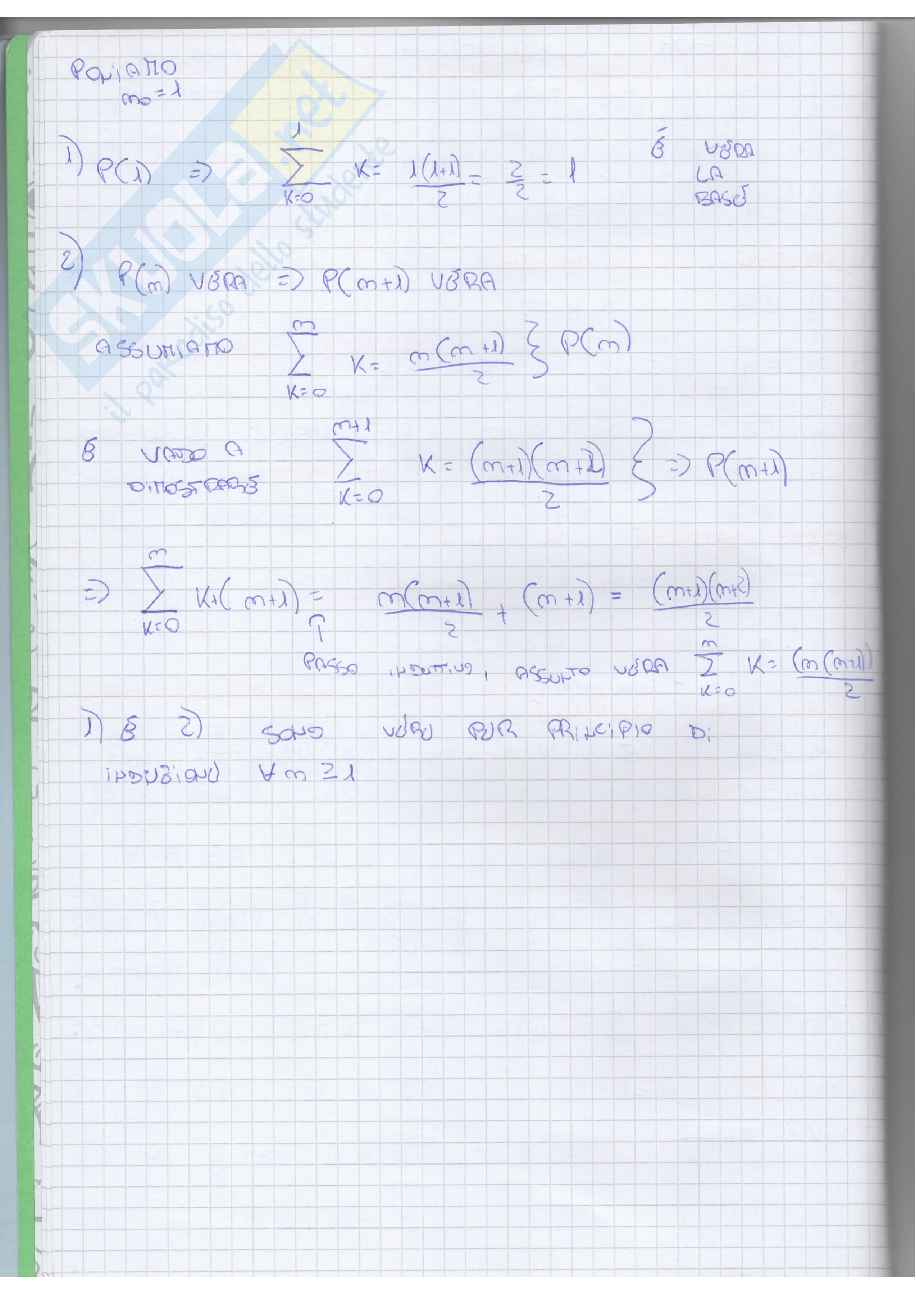 PONIAMO
n₀ = 1
1) P(1) => \sum_{K=0}^{1} K = \frac{1(1+1)}{2} = \frac{2}{2} = 1 È VERA
LA
BASE
2) P(n) VERA => P(n+1) VERA
ASSUMIAMO \sum_{K=0}^{n} K = \frac{n(n+1)}{2} } P(n)
E VADO A DIMOSTRARE \sum_{K=0}^{n+1} K = \frac{(n+1)(n+2)}{2} } => P(n+1)
=> \sum_{K=0}^{n} K + (n+1) = \frac{n(n+1)}{2} + (n+1) = \frac{(n+1)(n+2)}{2}
⇑
PASSO INDUTTIVO, ASSUNTO VERA \sum_{K=0}^{n} K = \frac{(n(n+1))}{2}
1) E 2) SONO VERE PER PRINCIPIO DI
INDUZIONE ∀ n ≥ 1
SKUOLA.net
il paradiso dello studente